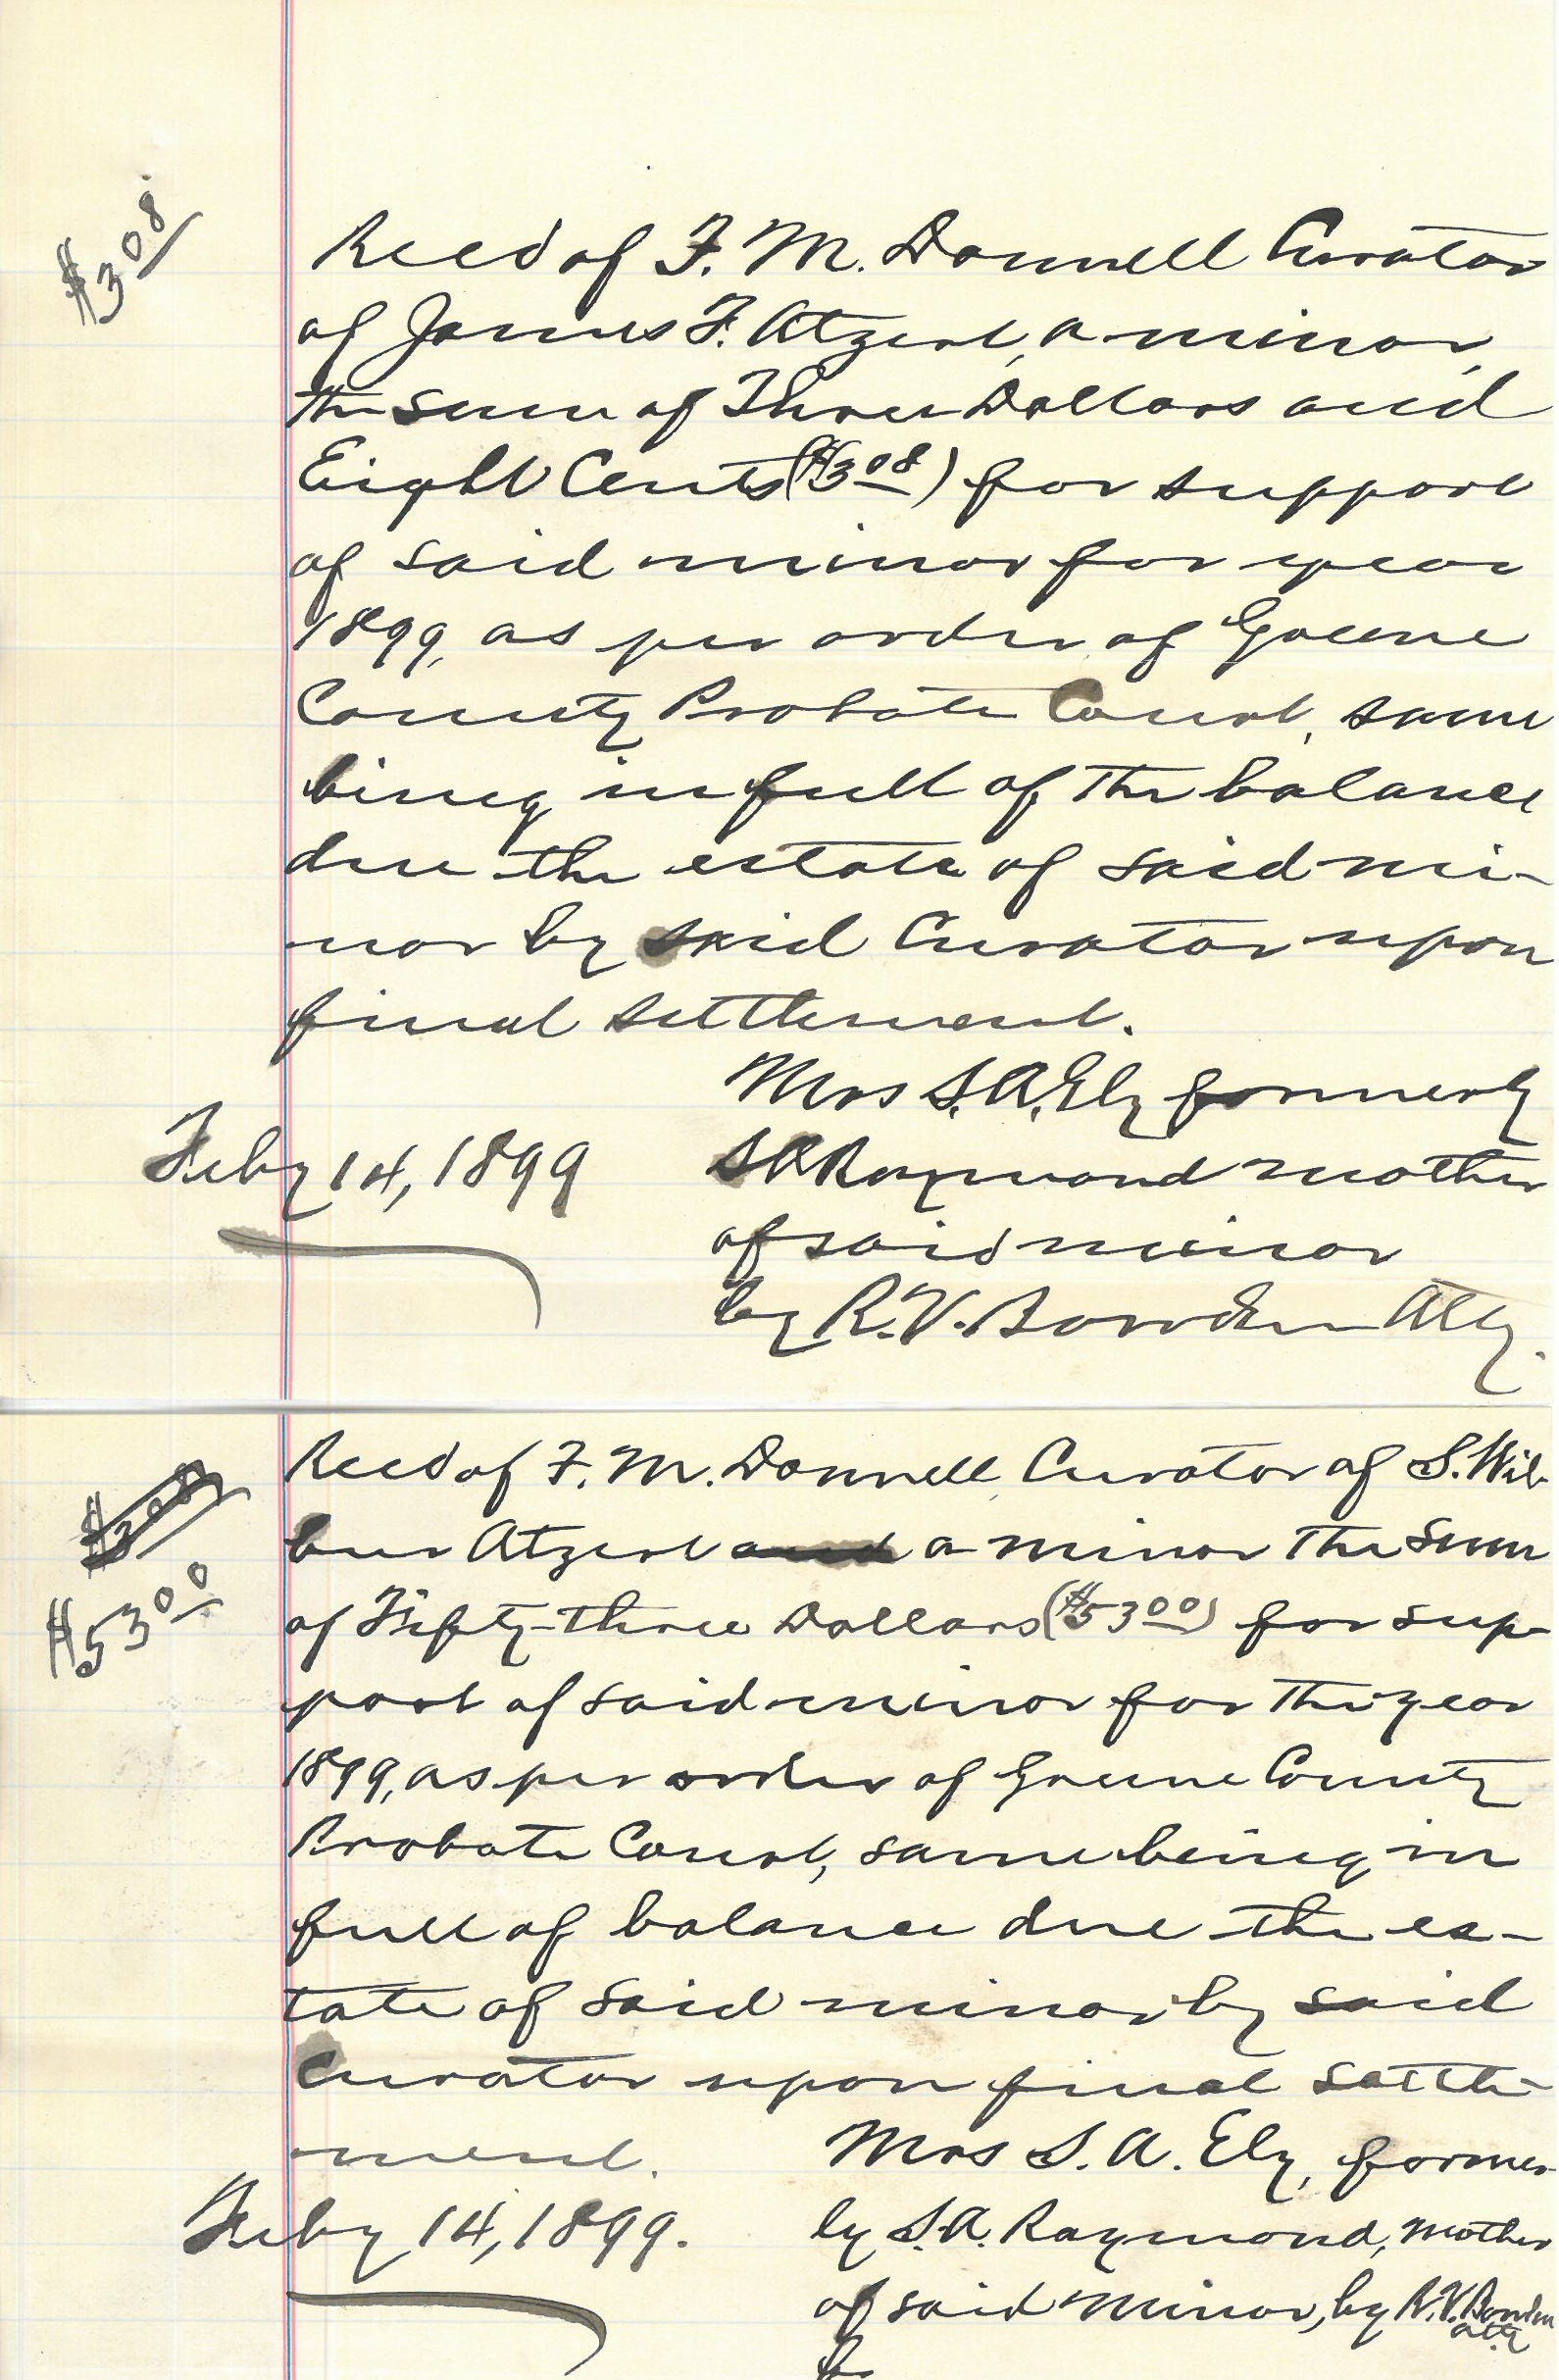 $3 08
Recd of F. M. Donnell Curator
of James F. Atzert, a minor,
the sum of Three Dollars and
Eight Cents ($3 08) for support
of said minor for year
1899, as per order of Greene
County Probate Court, same
being in full of the balance
due the estate of said mi-
nor by said Curator upon
final settlement.
Mrs S. A. Ely formerly
S A Raymond mother
of said minor
by R. V. Bowden Atty.
Feby 14, 1899
Recd of F. M. Donnell, Curator of S. Wil-
bur Atzert and a minor the sum
$53 00
of Fifty-three Dollars ($53 00) for sup-
port of said minor for the year
1899, as per order of Greene County
Probate Court, same being in
full of balance due the es-
tate of said minor by said
Curator upon final settle-
ment.
Mrs S. A. Ely, former-
ly S. A. Raymond, mother
of said minor, by R. V. Bowden
atty
Feby 14, 1899.